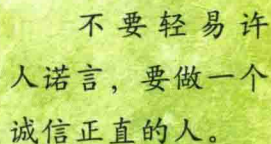 不要轻易许
人诺言，要做一个
诚信正直的人。